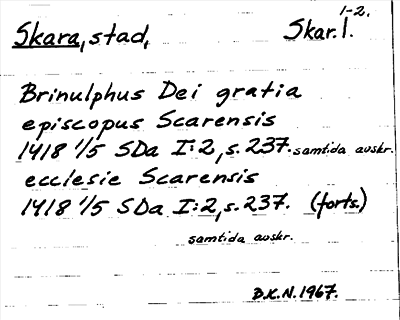 Skara, stad, Skar. 1. 1-2.
Brinulphus Dei gratia
episcopus Scarensis
1418 1/5 SDa I:2, s. 237. samtida avskr.
ecclesie Scarensis
1418 1/5 SDa I:2, s. 237. (forts.)
samtida avskr.
D.K.N. 1967.